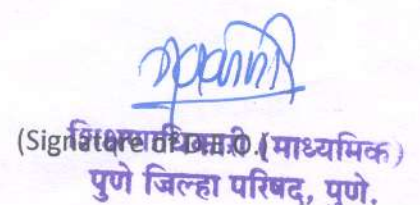 (Signature of D.E.O.)
शिक्षणाधिकारी (माध्यमिक)
पुणे जिल्हा परिषद, पुणे.